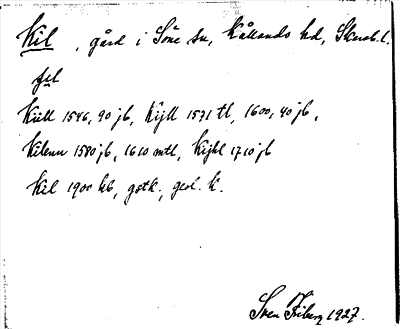 Kil, gård i Söne sn, Kållands hd, Skarab.l.
fil
Kiill 1546, 90 jb, Kijll 1571 tl, 1600, 40 jb,
Kilenn 1580 jb, 1610 mtl, Kijhl 1710 jb
Kil 1900 kb, gstk., geol. k.
Sven Friberg 1927.